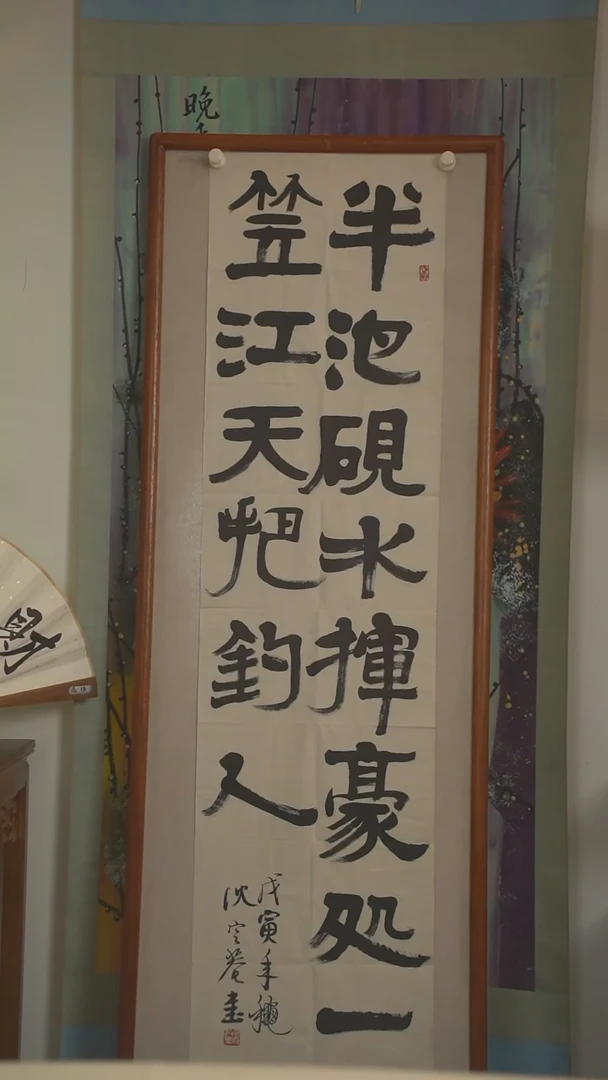 半池硯水揮豪処一
笠江天把釣人
戊寅年穐
沈定菴書
晚